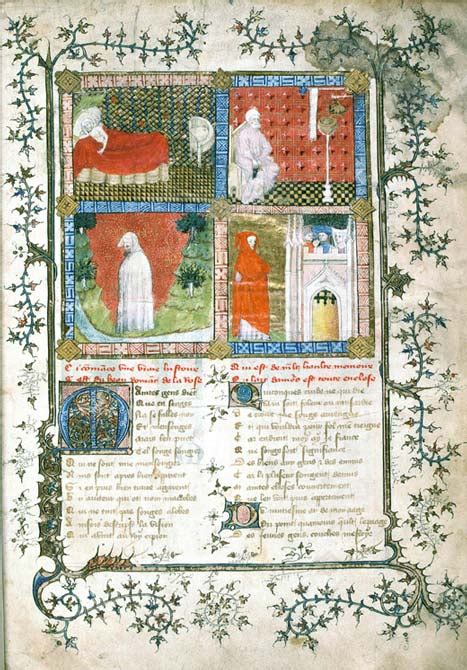 une vraie histoire
du beau de la Rose
Maintes gens dient
en songes
se fables non
Et mensonges
Mais len puet
Tel songe songier
Qui ne sont mie mensongier
Ains sont apres bien
Si en puis bien traire agarant
Un qui ot non macrobes
Qui ne tint pas songes alobes
descript la vision
Qui avint au roy cypion
Qui est de haulte memoire
Ou lart damors est toute enclose
Quiconques cuide ne qui die
Que soit folour ou musardie
De croire que songe aviengne
Et qui vouldra pour fol me tiengne
Car endroit moy ay je fiance
Que songes soit signifiance
Des biens aux gens et des ennuis
Car li plusour songent de nuis
Maintes choses couvertement
Que len voit puis appertement
Ou vintiesme an de mon aage
Ou point quamours prent le peage
Des jeunes gens couchiez mestoie